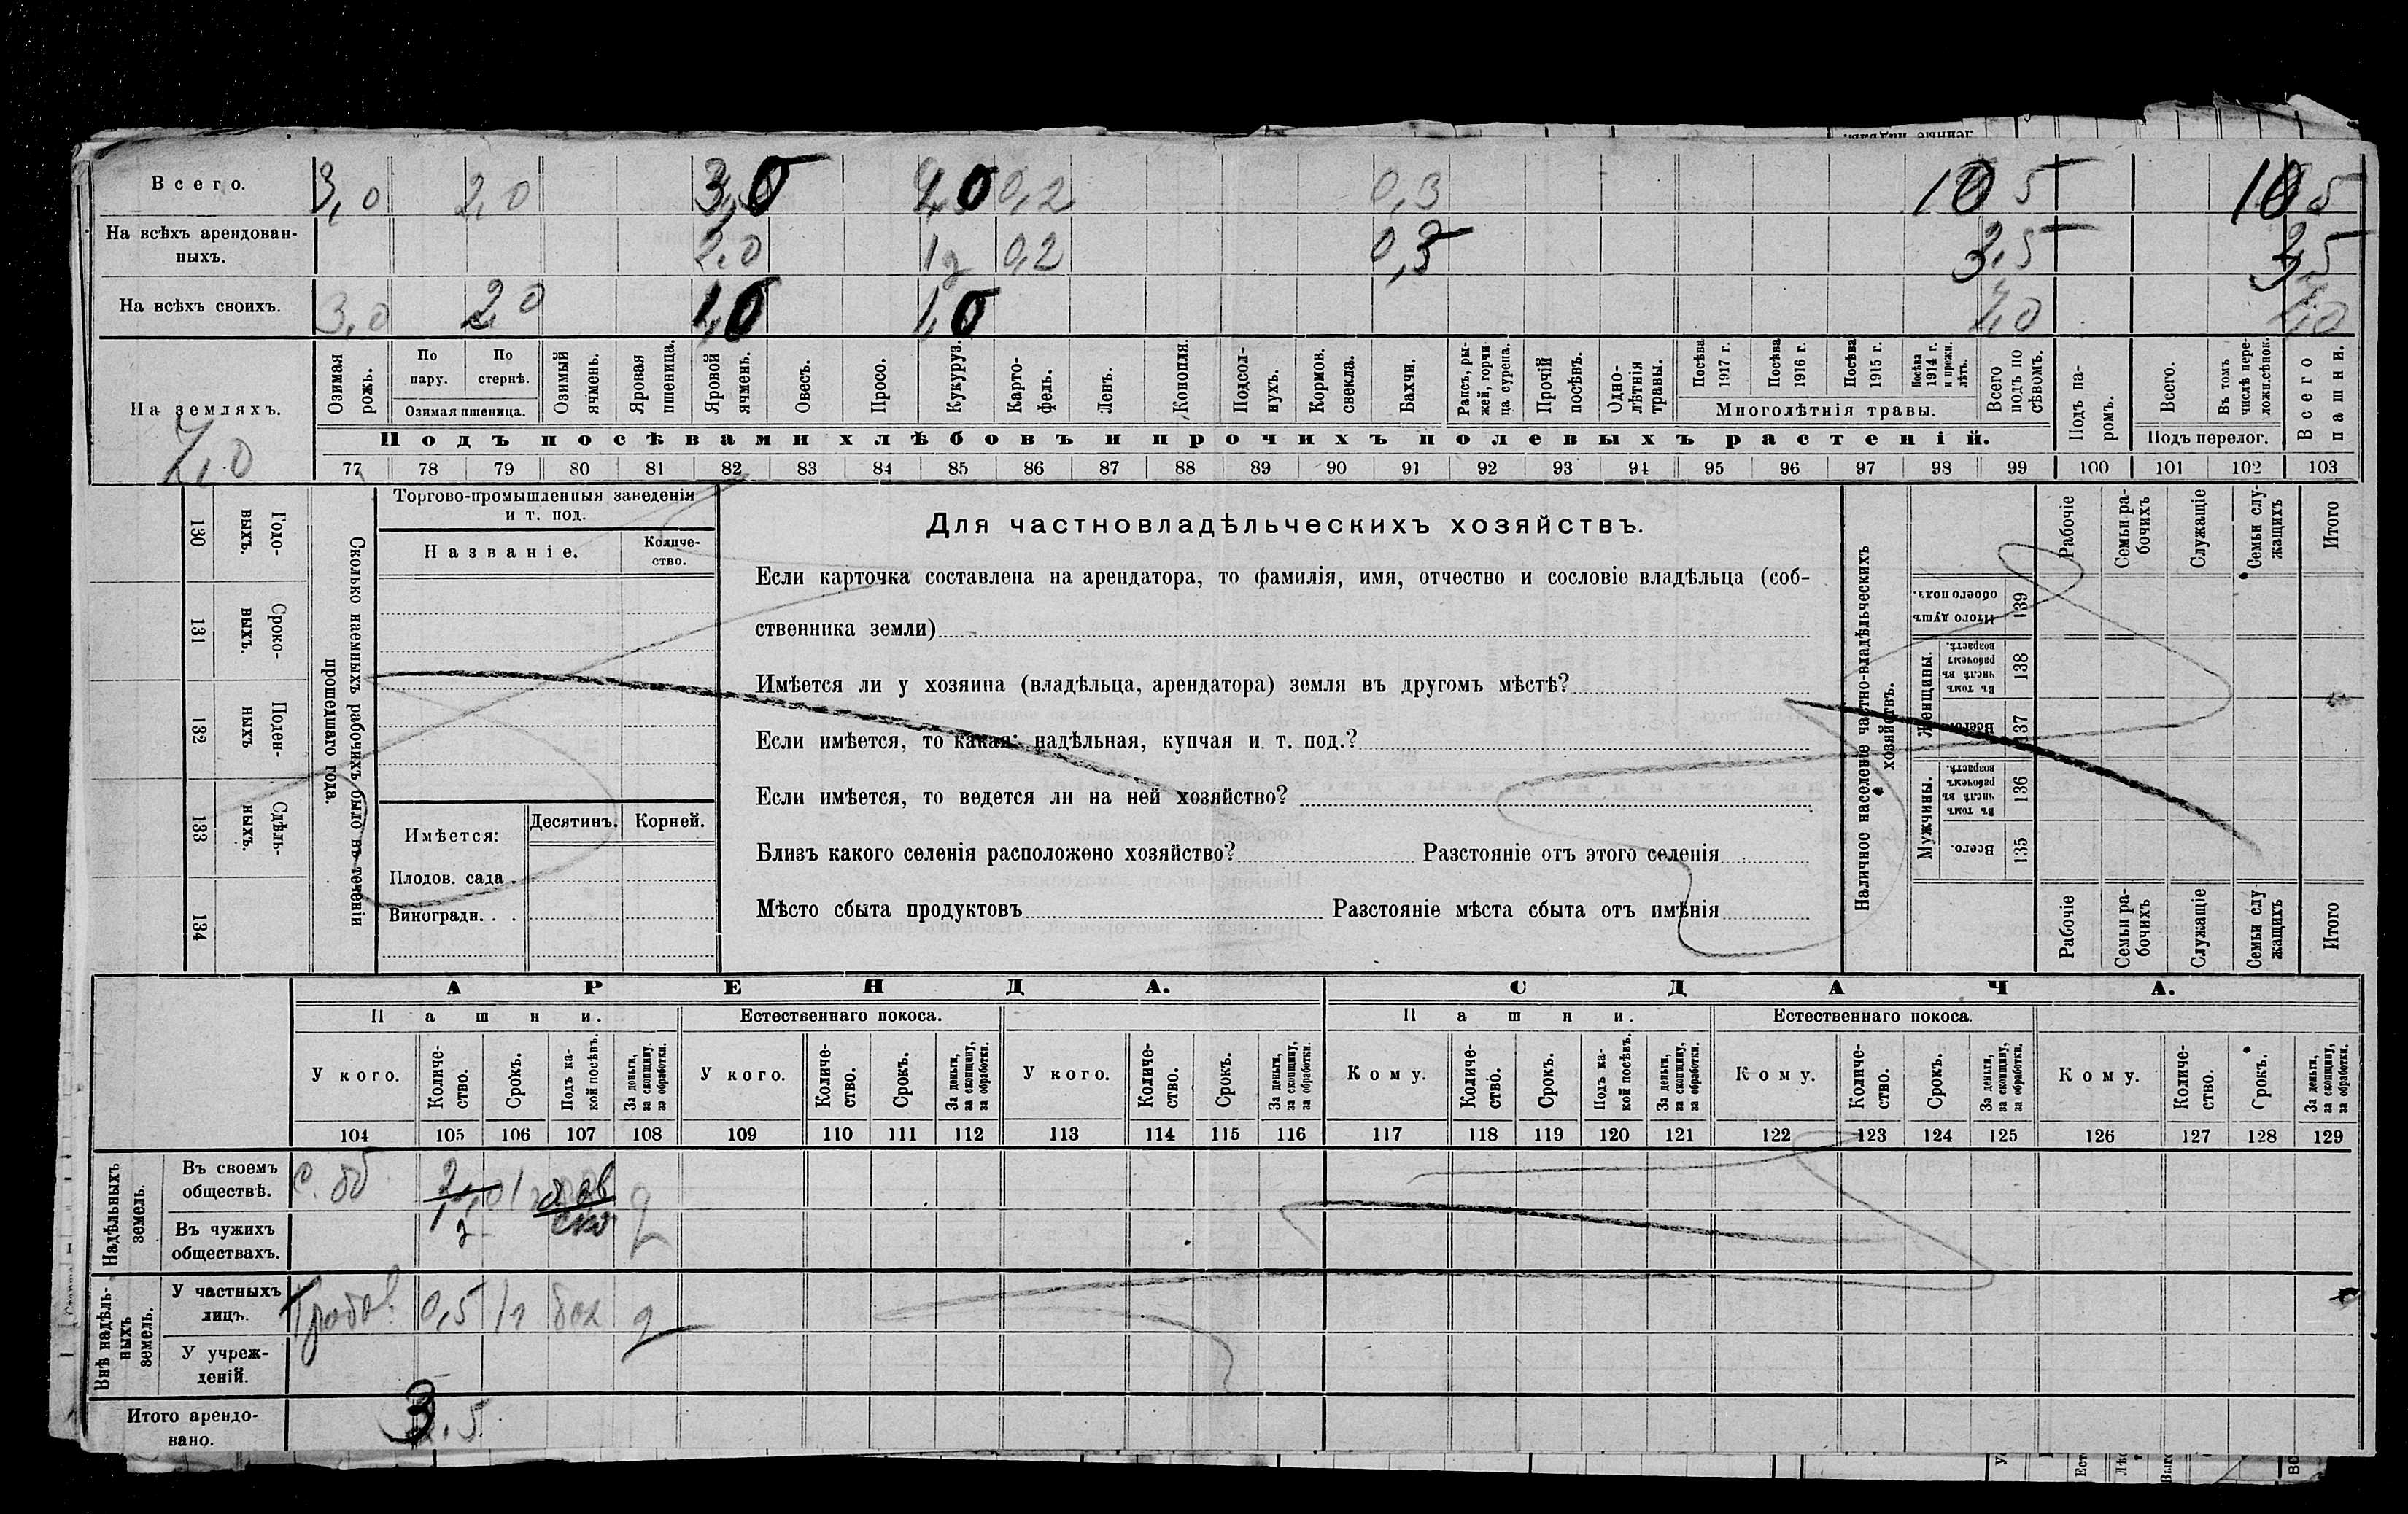 Всего. 3,0 2,0 3,0 0,2 0,3 10 5 10 5
На всѣхъ арендован-
ныхъ. 2,0 1 0,2 0,3 3,5 3,5
На всѣхъ своихъ. 3,0 2,0 1,0 1,0 7,0 7,0
На земляхъ.
7,0
Озимая рожь.
По пару.
По стернѣ.
Озимая пшеница.
Озимый ячмень.
Яровая пшеница.
Яровой ячмень.
Овесъ.
Просо.
Кукуруз.
Карто-
фель.
Ленъ.
Конопля.
Подсол-
нухъ.
Кормов. свекла.
Бахчи.
Рапсъ, ры-
жей, горчи
ца сурепа.
Прочій посѣвъ.
Одно-
лѣтнія травы.
Посѣва 1917 г.
Посѣва 1916 г.
Посѣва 1915 г.
Посѣва 1914 г. и прежн. лѣтъ.
Многолѣтнія травы.
Всего подъ по
сѣвомъ.
Подъ па-
ромъ.
Всего.
Въ томъ числѣ пере-
ложн.сѣнок.
Подъ перелог.
Всего пашни.
Подъ посѣвами хлѣбовъ и прочихъ полевыхъ растеній.
77 78 79 80 81 82 83 84 85 86 87 88 89 90 91 92 93 94 95 96 97 98 99 100 101 102 103
130 Годо-
выхъ.
131 Сроко-
выхъ.
132 Поден-
ныхъ
133 Сдѣль-
ныхъ.
134
Сколько наемныхъ рабочихъ было въ теченіи
прошедшаго года.
Торгово-промышленныя заведенія
и т. под.
Названіе.
Количе-
ство.
Имѣется:
Десятинъ.
Корней.
Плодов. сада .
Виноградн. . .
Для частновладѣльческихъ хозяйствъ.
Если карточка составлена на арендатора, то фамилія, имя, отчество и сословіе владѣльца (соб-
ственника земли)
Имѣется ли у хозяина (владѣльца, арендатора) земля въ другомъ мѣстѣ?
Если имѣется, то какая: надѣльная, купчая и т. под.?
Если имѣется, то ведется ли на ней хозяйство?
Близъ какого селенія расположено хозяйство? Разстояніе отъ этого селенія
Мѣсто сбыта продуктовъ Разстояніе мѣста сбыта отъ имѣнія
Наличное населеніе частно-владѣльческихъ
хозяйствъ.
Мужчины.
Женщины.
Всего.
135
Въ томъ числѣ въ рабочемъ возрастѣ.
136
Всего.
137
Въ томъ числѣ въ рабочемъ возрастѣ.
138
Итого душъ обоего пола.
139
Рабочіе
Семьи ра-
бочихъ
Служащіе
Семьи слу-
жащихъ
Итого
Рабочіе
Семьи ра-
бочихъ
Служащіе
Семьи слу
жащихъ
Итого
АРЕНДА.
СДАЧА.
Пашни.
Естественнаго покоса.
Пашни.
Естественнаго покоса.
У кого.
Количе-
ство.
Срокъ.
Подъ ка-
кой посѣвъ.
За деньги, за скопщину, за обработки.
У кого.
Количе-
ство.
Срокъ.
За деньги, за скопщину, за обработки.
У кого.
Количе-
ство.
Срокъ.
За деньги, за скопщину, за обработки.
Кому.
Количе-
ство.
Срокъ.
Подъ ка-
кой посѣвъ.
За деньги, за скопщину, за обработки.
Кому.
Количе-
ство.
Срокъ.
За деньги, за скопщину, за обработки.
Кому.
Количе-
ство.
Срокъ.
За деньги, за скопщину, за обработки.
104 105 106 107 108 109 110 111 112 113 114 115 116 117 118 119 120 121 122 123 124 125 126 127 128 129
Надѣльныхъ земель.
Въ своемъ
обществѣ.
Въ чужихъ
обществахъ.
Внѣ надѣль-
ныхъ земель.
У частныхъ
лицъ. 0,5 бах
У учреж-
деній.
Итого арендо-
вано. 3.5